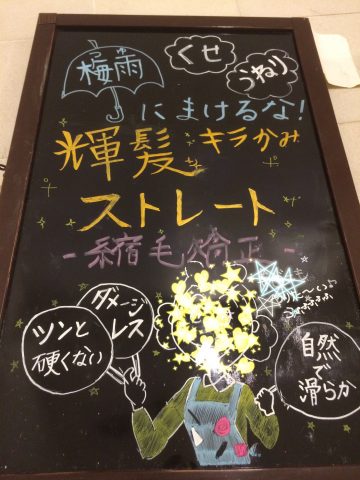 つゆ
梅雨
くせ
うねり
にまけるな！
輝髪
キラかみ
ストレート
-縮毛矯正-
ダメージ
レス
ツンと
硬くない
自然
で
滑らか